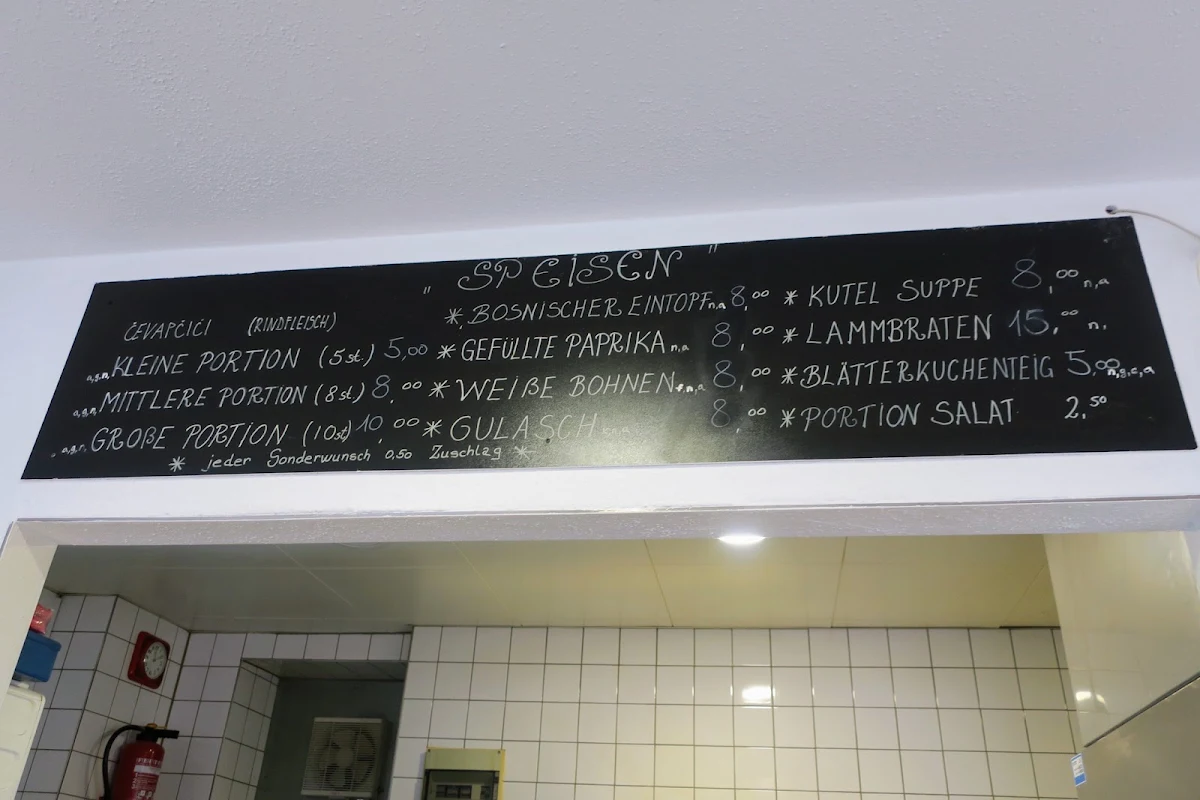 " SPEISEN "
ČEVAPČIĆI (RINDFLEISCH)
a,g,n, KLEINE PORTION (5st.) 5,00
a,g,n, MITTLERE PORTION (8st.) 8,00
GROßE PORTION (10st) 10,00
* jeder Sonderwunsch 0,50 Zuschlag *
* BOSNISCHER EINTOPF n,a 8,00
* GEFÜLLTE PAPRIKA n,a 8,00
* WEIßE BOHNEN 8,00
* GULASCH 8,00
* KUTEL SUPPE 8,00 n,a
* LAMMBRATEN 15,00 n,
* BLÄTTERKUCHENTEIG 5,00
* PORTION SALAT 2,50